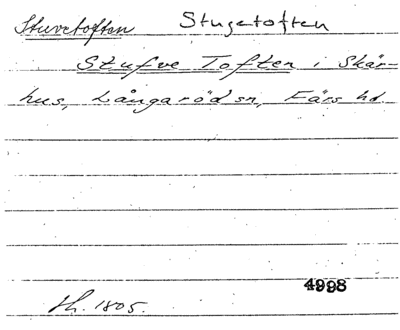 Stuvetoften Stugetoften
Stufve Toften i Skär-
hus, Långaröd sn, Färs hd.
4998
Sk. 1805.